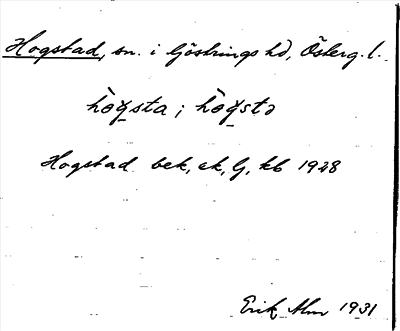 Hogstad, sn. i Göstrings hd, Österg. l.
hògsta; hògstə
Hogstad bek, ek, lj, kb 1928
Erik Alm 1931